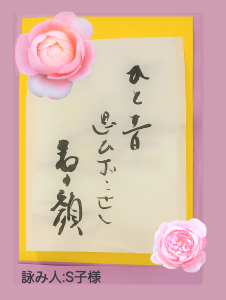 ひと音
思ひおこせし
君の顔
詠み人:S子様